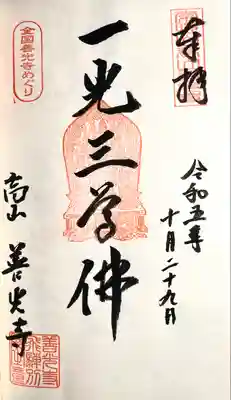 奉拝
令和五年
十月二十九日
一光三尊佛
全国善光寺めぐり
高山 善光寺
善光寺
飛騨別